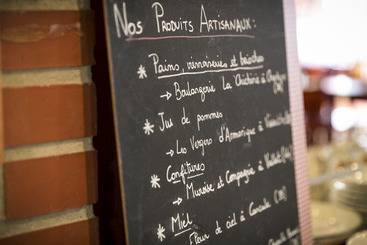 Nos Produits Artisanaux :
* Pains, viennoiseries et brioches
→ Boulangerie La
* Jus de pommes
→ Les Vergers d'Armorique à
* Confitures
→ Muroise et Compagnie à
* Miel
→ Fleur de ciel à